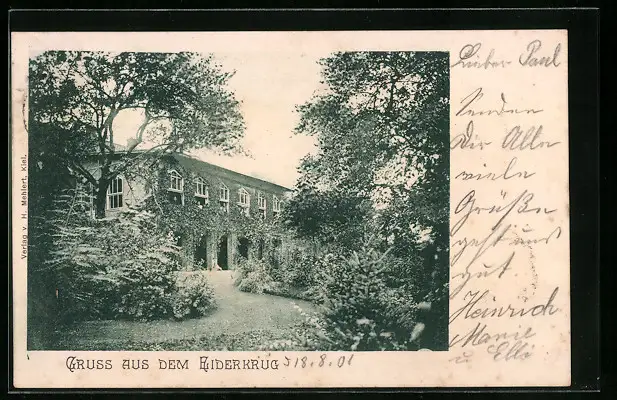 Verlag v. H. Mehlert, Kiel.
GRUSS AUS DEM EIDERKRUG 18.8.01
Lieber Paul
Senden
Dir Alle
viele
Grüße
gut
Heinrich
Marie
u Elli